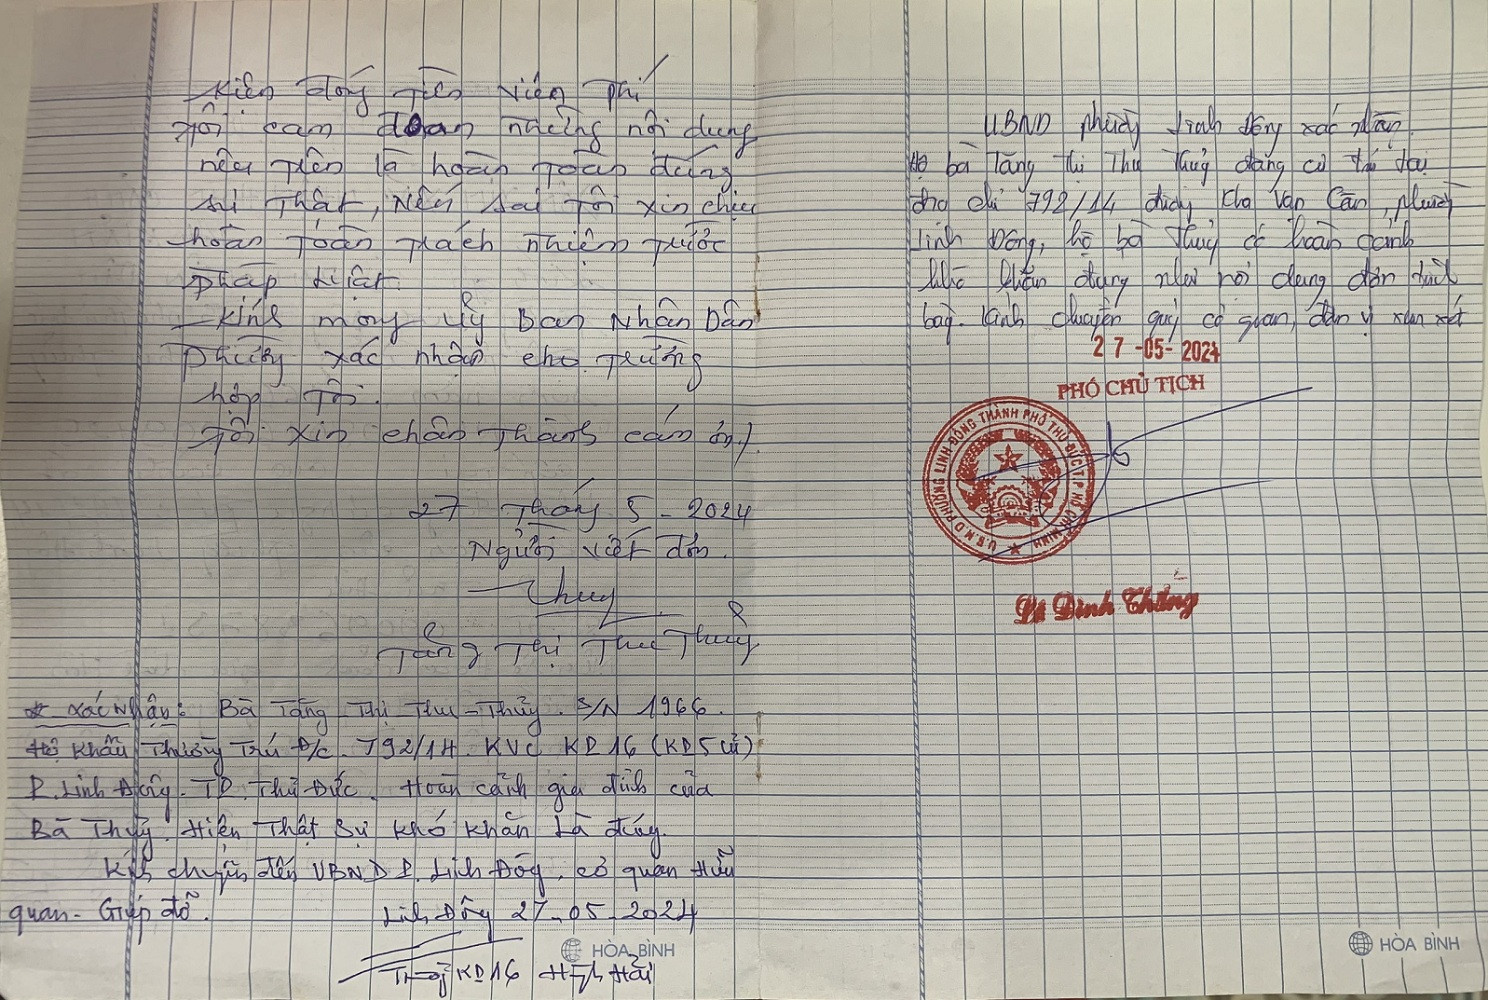 Kiện đóng tiền viện phí
Tôi cam đoan những nội dung
nêu trên là hoàn toàn đúng
sự thật, nếu sai tôi xin chịu
hoàn toàn trách nhiệm trước
pháp luật.
- Kính mong Uỷ Ban Nhân Dân
phường xác nhận cho trường
hợp tôi.
Tôi xin chân thành cám ơn
27 Tháng 5 - 2024
Người viết đơn.
Thuy
Tăng Thị Thu Thuỷ
* Xác Nhận: Bà Tăng Thị Thu Thủy. S/N 1966.
Hộ khẩu Thường Trú Đ/c. 792/14. KVC KP 16 (KP5 cũ)
P. Linh Đông - TP. Thủ Đức. Hoàn cảnh gia đình của
Bà Thủy. Hiện Thật sự khó khăn là đúng.
Kính chuyển đến UBND P. Linh Đông, cơ quan Hữu
quan - Giúp đỡ.
Linh Đông 27-05-2024
KP16
HÒA BÌNH
UBND phường Linh Đông xác nhận
Hộ bà Tăng Thị Thu Thuỷ đang cư trú tại
địa chỉ 792/14 đường Kha Vạn Cân, phường
Linh Đông, hộ bà Thuỷ có hoàn cảnh
khó khăn đúng như nội dung đơn trình
bày. Kính chuyển quý cơ quan, đơn vị xem xét
27-05-2024
PHÓ CHỦ TỊCH
U.B.N.D PHƯỜNG LINH ĐÔNG THÀNH PHỐ THỦ ĐỨC T.P HỒ CHÍ MINH
Lê Đình Thắng
HÒA BÌNH